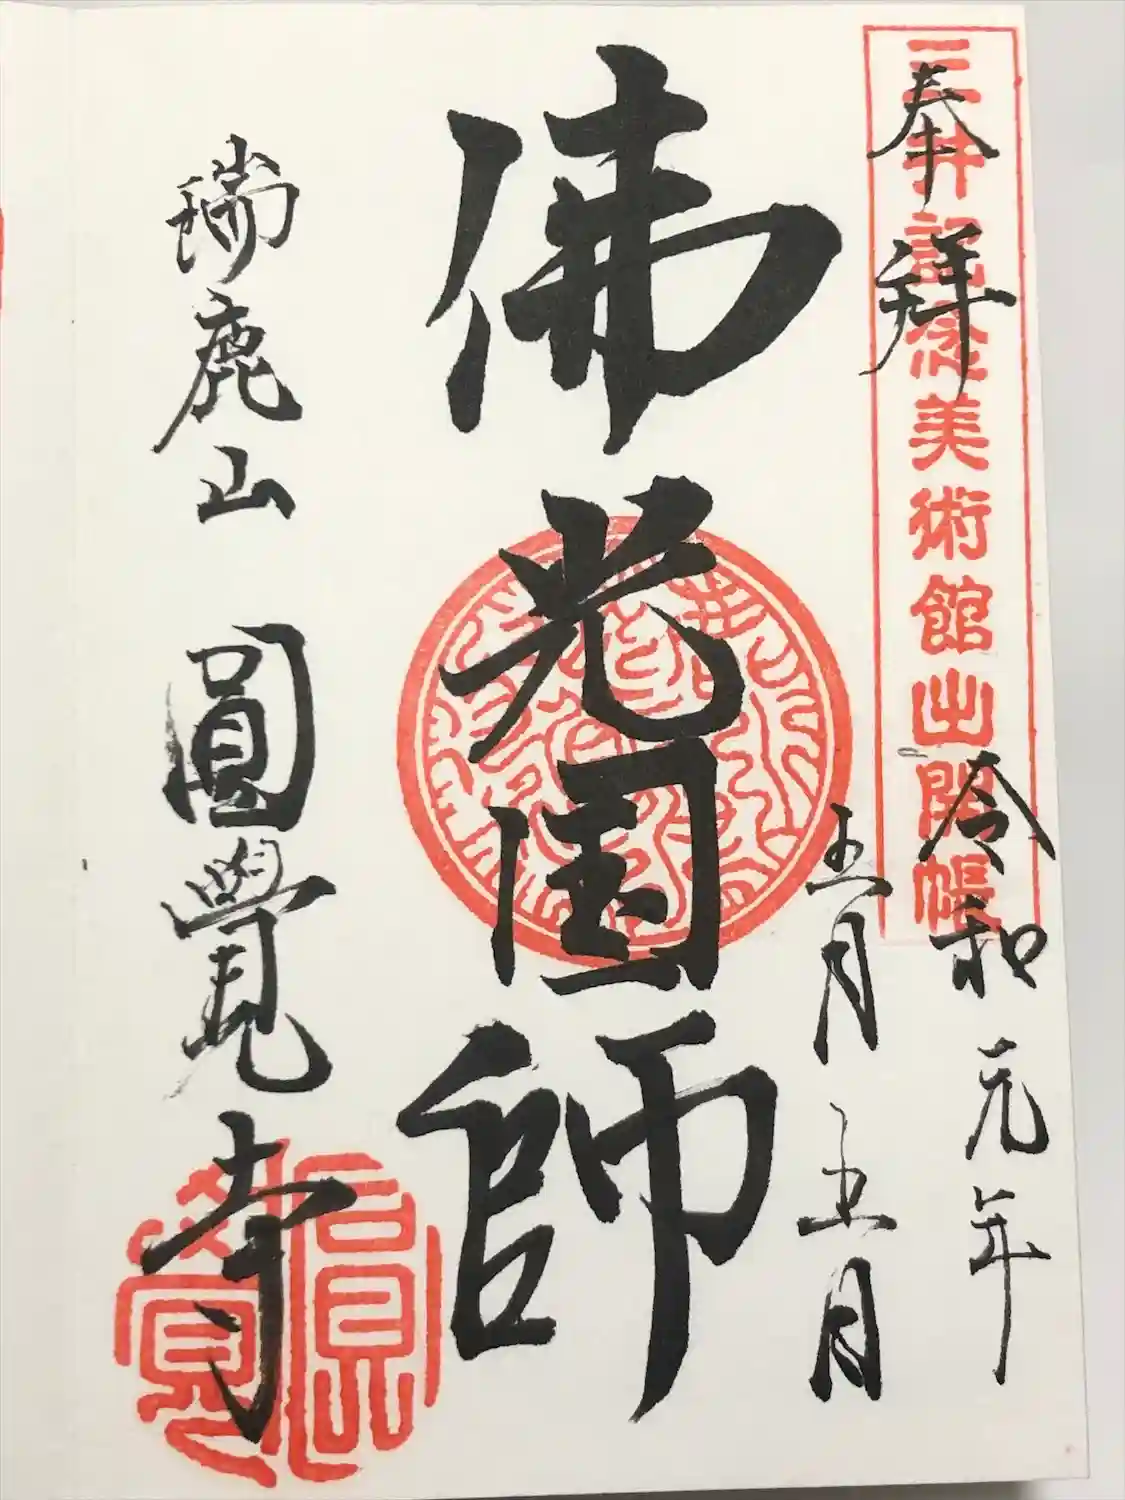 奉拜
三井記念美術館出開帳
令和元年
五月五月
佛光国師
瑞鹿山 圓覺寺
圓覺